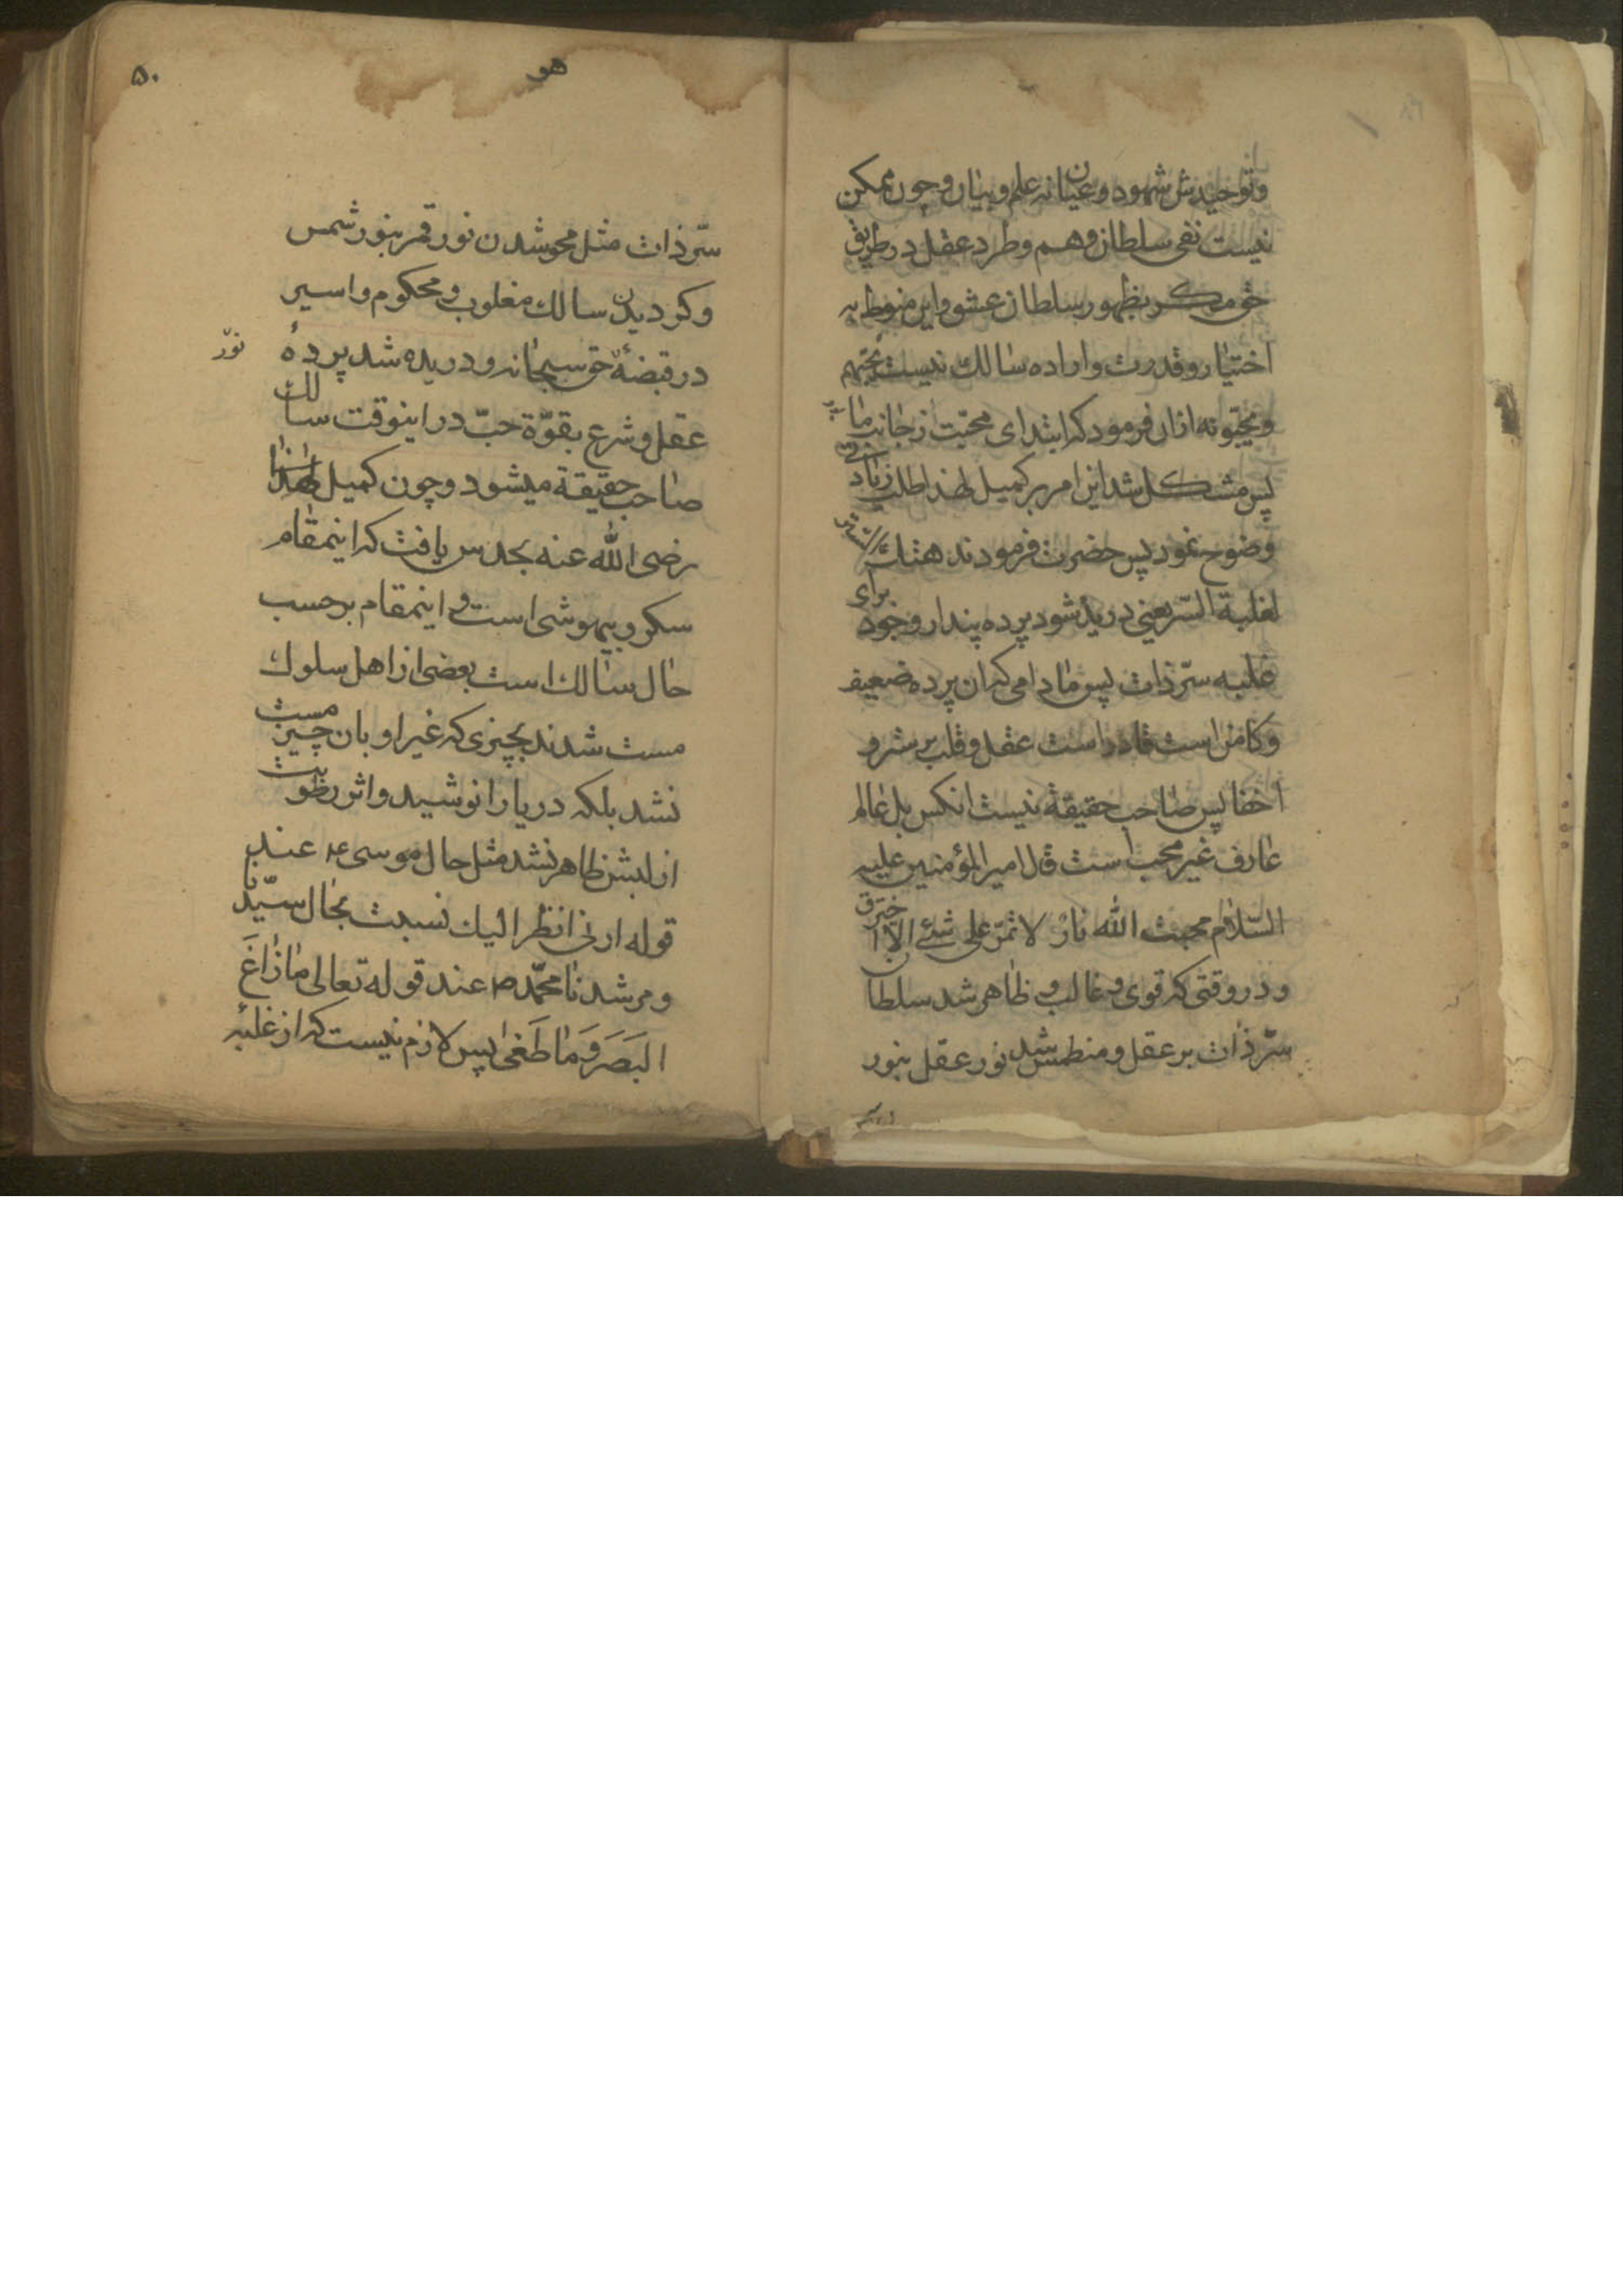 وتوحیدش شهود و عیان نه علم و بیان و چون ممکن
نیست نفی سلطان وهم و طرد عقل در طریق
حق مکر بظهور سلطان عشق و این منوط به
اختیار و قدرت و اراده سالك نیست یحبهم
و یحبونه ازان فرمود که ابتدای محبت از جانب ما
پس مشکل شد این امر بر کمیل لهذا طلب زیاد
وضوح نمود پس حضرت فرمودند هتك الستر
لغلبة السّر یعنی دریده شود پرده پندار وجود برای
غلبه سرّ ذات پس مادامی که ان پرده ضعیف
و کامن است قادر است عقل و قلب بر ستر و
اخفا پس صاحب حقیقة نیست انکس بل عالم
عارف غیر محب است قال امیر المؤمنین علیه
السّلام محبت الله نارٌ لا تمرّ علی شئ الّا احترق
و در وقتی که قوی و غالب و ظاهر شد سلطان
سرّ ذات بر عقل و منطمس شد نور عقل بنور
۵۰
هو
سرّ ذات مثل محو شدن نور قمر بنور شمس
و کردیدن سالك مغلوب و محکوم و اسیر
در قبضهٔ حق سبحانه و دریده شد پردهٔ
نوّر
عقل و شرع بقوّة حبّ در اینوقت سالك
صاحب حقیقة میشود و چون کمیل
رضی الله عنه بحدس یافت که اینمقام
سکر و بیهوشی است و اینمقام بر حسب
حال سالك است بعضی از اهل سلوك
مست شدند بچیزی که غیر او بان چیز مست
نشد بلکه دریا را نوشید و اثر رطوبت
از لبش ظاهر نشد مثل حال موسی ع عند
قوله ارنی انظر الیك نسبت بحال سیّدنا
و مرشدنا محمّد ص عند قوله تعالی مَا زَاغَ
البَصَرُ وَمَا طَغیٰ پس لازم نیست که از غلبهٔ